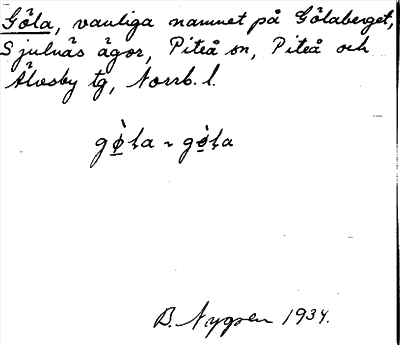 Göla, vanliga namnet på Gölaberget,
Sjulnäs ägor, Piteå sn, Piteå och
Älvsby tg, Norrb. l.
gø̀ḷa ~ gø̀ḷa
B. Nygren 1934.